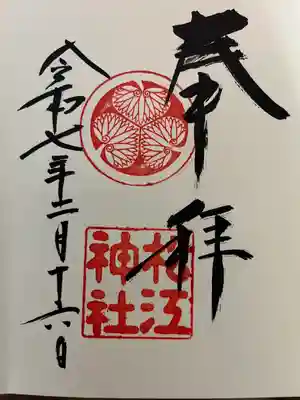 奉拝
松江
神社
令和七年十二月十六日